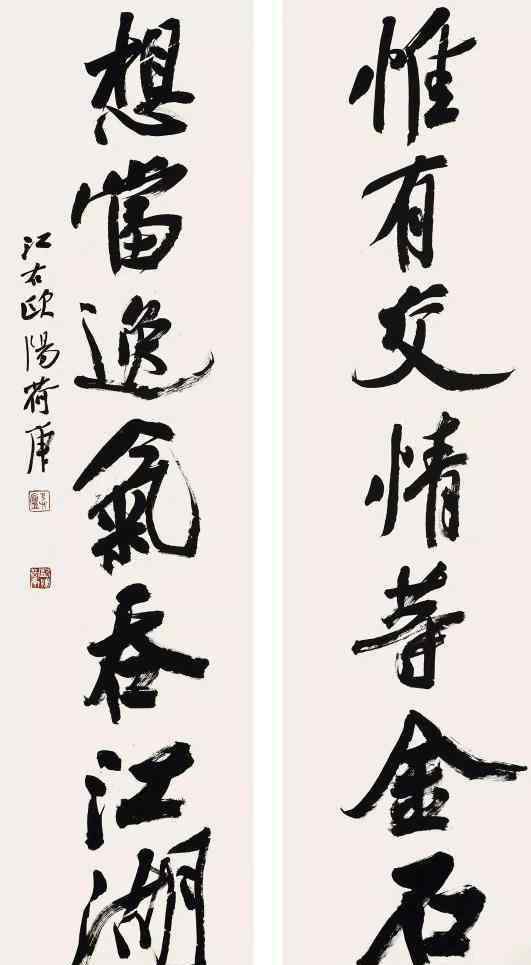 惟有交情等金石
想當逸氣吞江湖
江右歐陽荷庚